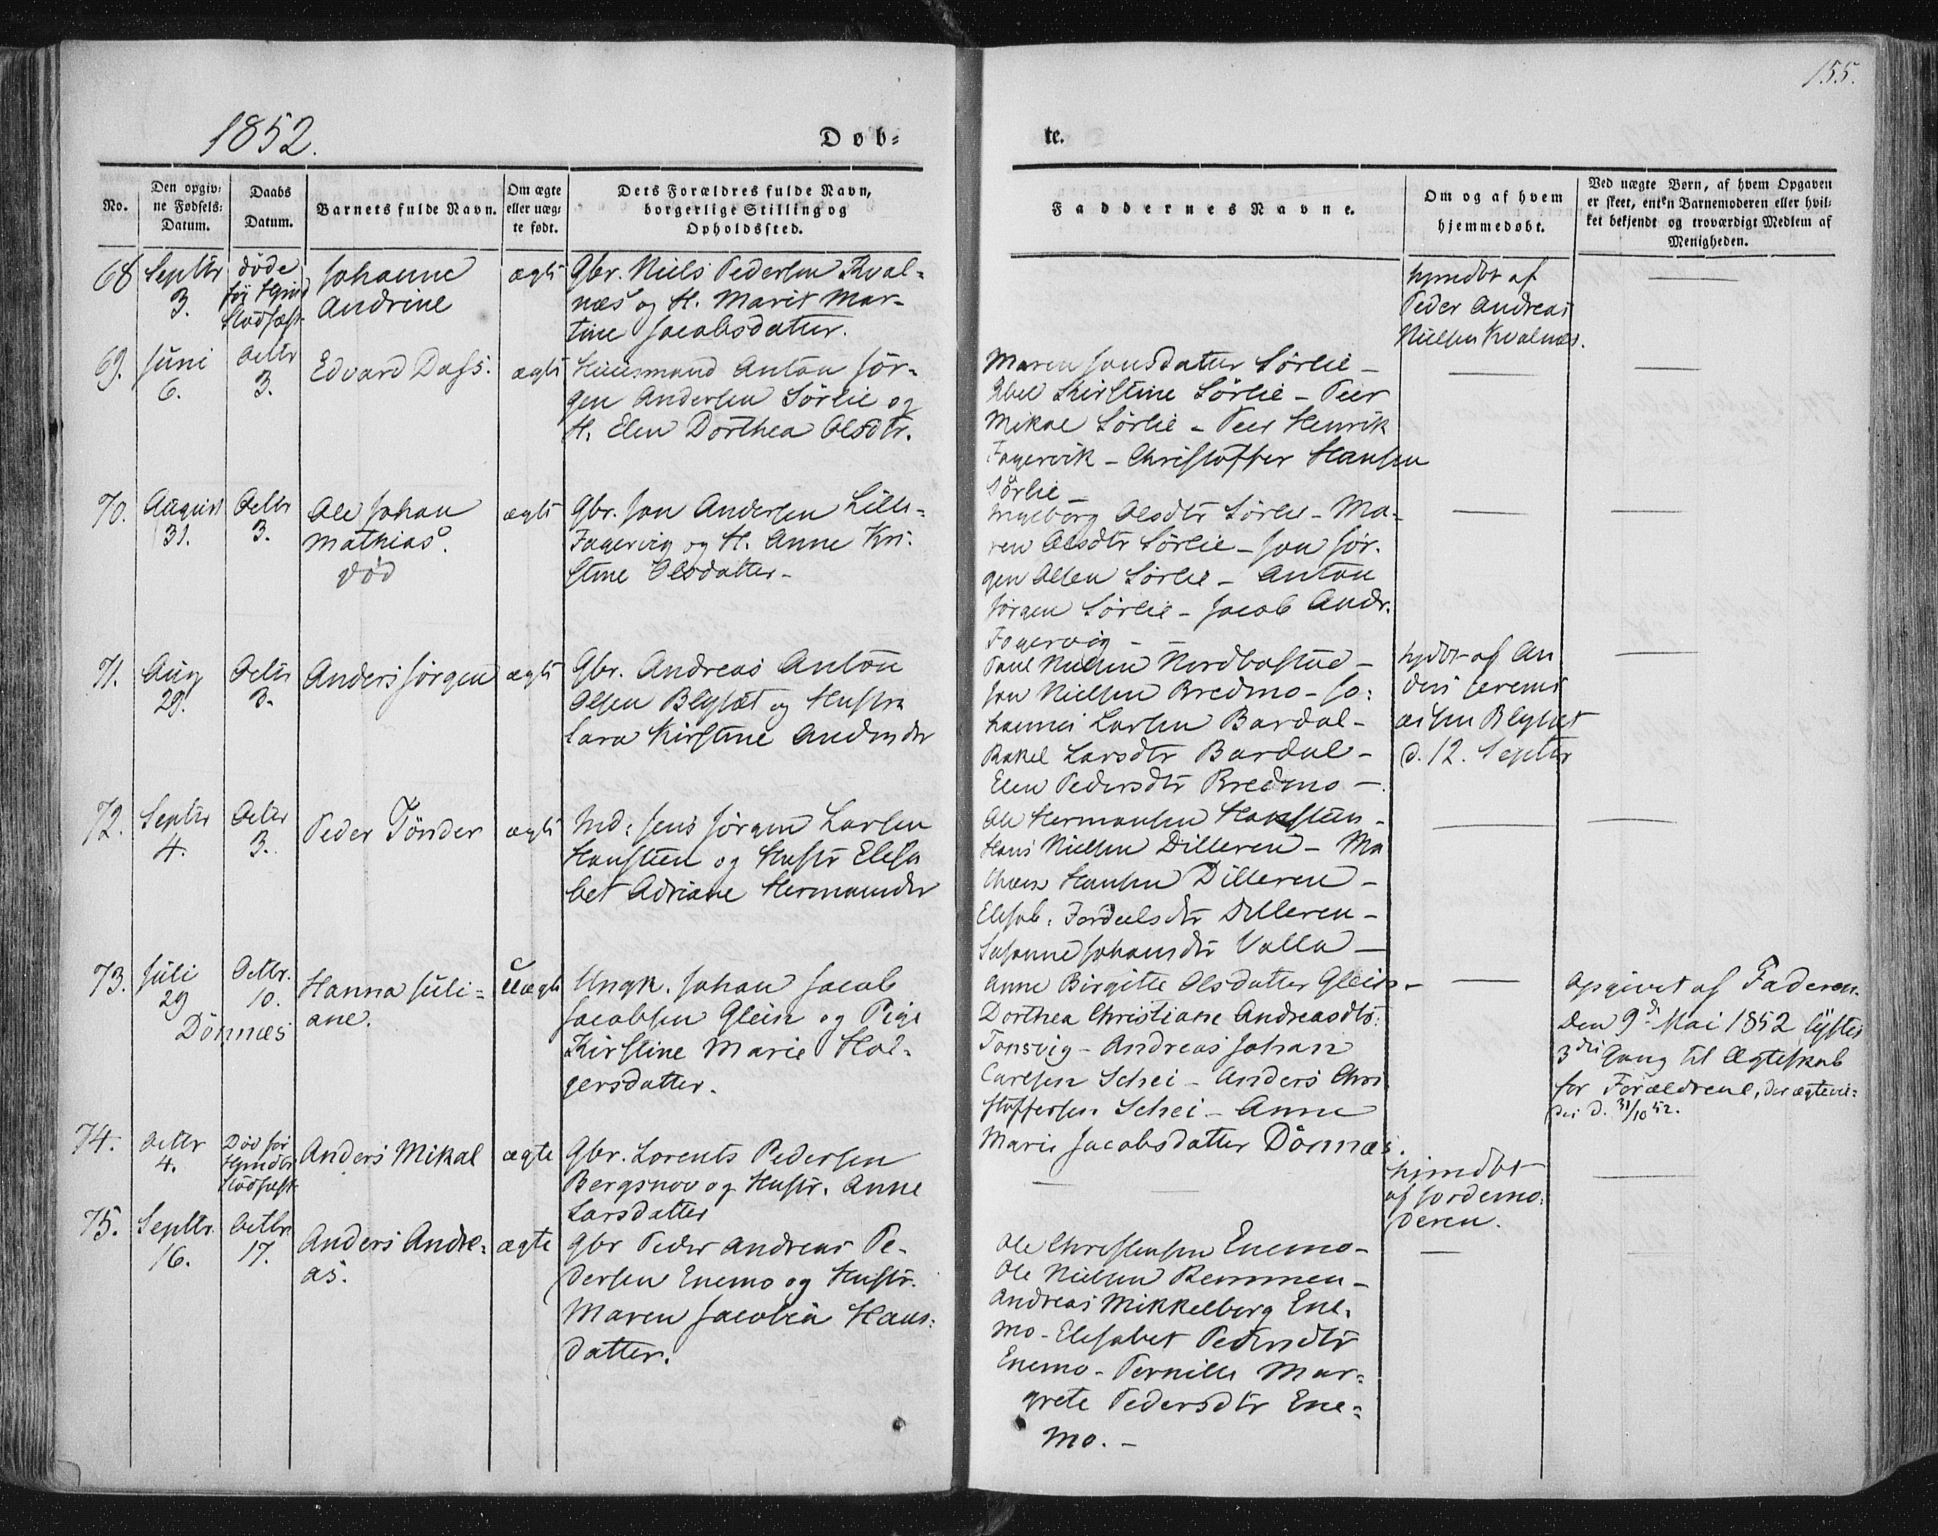 155.
1852.
Døb-
te.
No.
Den opgiv-
ne Fødsels-
Datum.
Daabs
Datum.
Barnets fulde Navn.
Om ægte
eller uæg-
te født.
Dets Forældres fulde Navn,
borgerlige Stilling og
Opholdssted.
Faddernes Navne.
Om og af hvem
hjemmedøbt.
Ved uægte Børn, af hvem Opgaven
er skeet, enten Barnemoderen eller hvil-
ket bekjendt og troværdigt Medlem af
Menigheden.
68
Septbr
3.
døde
før Hjmd
Stadfæst.
Johanne
Andrine
ægte
Gbr. Niels Pedersen Kval-
næs og H. Marit Mar-
tine Jacobsdatter.
hjmdbt af
Peder Andreas
Nielsen Kvalnæs.
69.
Juni
6.
Octbr
3.
Edvard Dass.
ægte
Huusmand Anton Jør-
gen Andersen Sørlie og
H. Elen Dorthea Olsdtr.
Maren Jonsdatter Sørlie -
Abel Kirstine Sørlie - Peer
Mikal Sørlie - Peer Henrik
Fagervik - Christoffer Hansen
Sørlie -
70.
August
31.
Octbr
3.
Ole Johan
Mathias.
død
ægte
Gbr. Jon Andersen Lille-
Fagervig og H. Anne Kri-
stine Olsdatter -
Ingeborg Olsdtr Sørlie - Ma-
ren Olsdtr Sørlie - Jon Jør-
gen Olsen Sørlie - Anton
Jørgen Sørlie - Jacob Andr.
Fagervig -
71.
Aug
29.
Octbr
3.
Anders Jørgen
ægte
Gbr. Andreas Anton
Olsen Blysæt og Hustru
Lara Kirstine Andersdtr
Paul Nielsen Nordbostue -
Jon Nielsen Bredmo - Jo-
hannes Larsen Bardal -
Rakel Larsdtr Bardal -
Elen Pedersdtr Bredmo -
hjdbt af An
ders Jeremi
asen Blysæt
d. 12. Septbr
72.
Septbr
4.
Octbr
3.
Peder Tønder
ægte
Md: Jens Jørgen Larsen
Hansteen og Hustr Elisa
bet Adriane Hermansdtr
Ole Hermansen Hansteen -
Hans Nielsen Dilleren - Ma
Hansen Dilleren -
Elisab. Dilleren -
Susanne Johansdtr Valla -
73.
Juli
29
Octbr.
10.
Dönnæs
Hanna Juli-
ane.
Uægte
Ungk. Johan Jacob
Jacobsen Glein og Pige
Kirstine Marie Hol-
gersdatter.
Anne Birgitte Olsdatter Glein -
Dorthea Christiane Andreasdtr.
Tonsvig - Andreas Johan
Carlsen Schei - Anders Chri
stoffersen Schei - Anne
Marie Jacobsdatter Dönnæs.
Opgivet af Faderen.
Den 9de Mai 1852 lystes
3die Gang til Ægteskab
for Forældrene, der ægtevie-
des d. 31/10 52.
74.
Octbr
4.
Død før
Hjmdbs
Stadfæst.
Anders Mikal
ægte
Gbr. Lorents Pedersen
Bergsnov og Hustr. Anne
Larsdatter
hjmdbt
af Jordemo-
deren.
75.
Septbr.
16.
Octbr.
17.
Anders Andre-
as.
ægte
Gbr Peder Andreas Pe-
dersen Enemo og Hustr.
Maren Jacobea Hans-
datter.
Ole Christensen Enemo -
Ole Nielsen Remmen -
Andreas Mikkelborg Ene-
mo - Elisabet Pedersdtr
Enemo - Pernille Mar-
grete Pedersdtr Ene-
mo. -